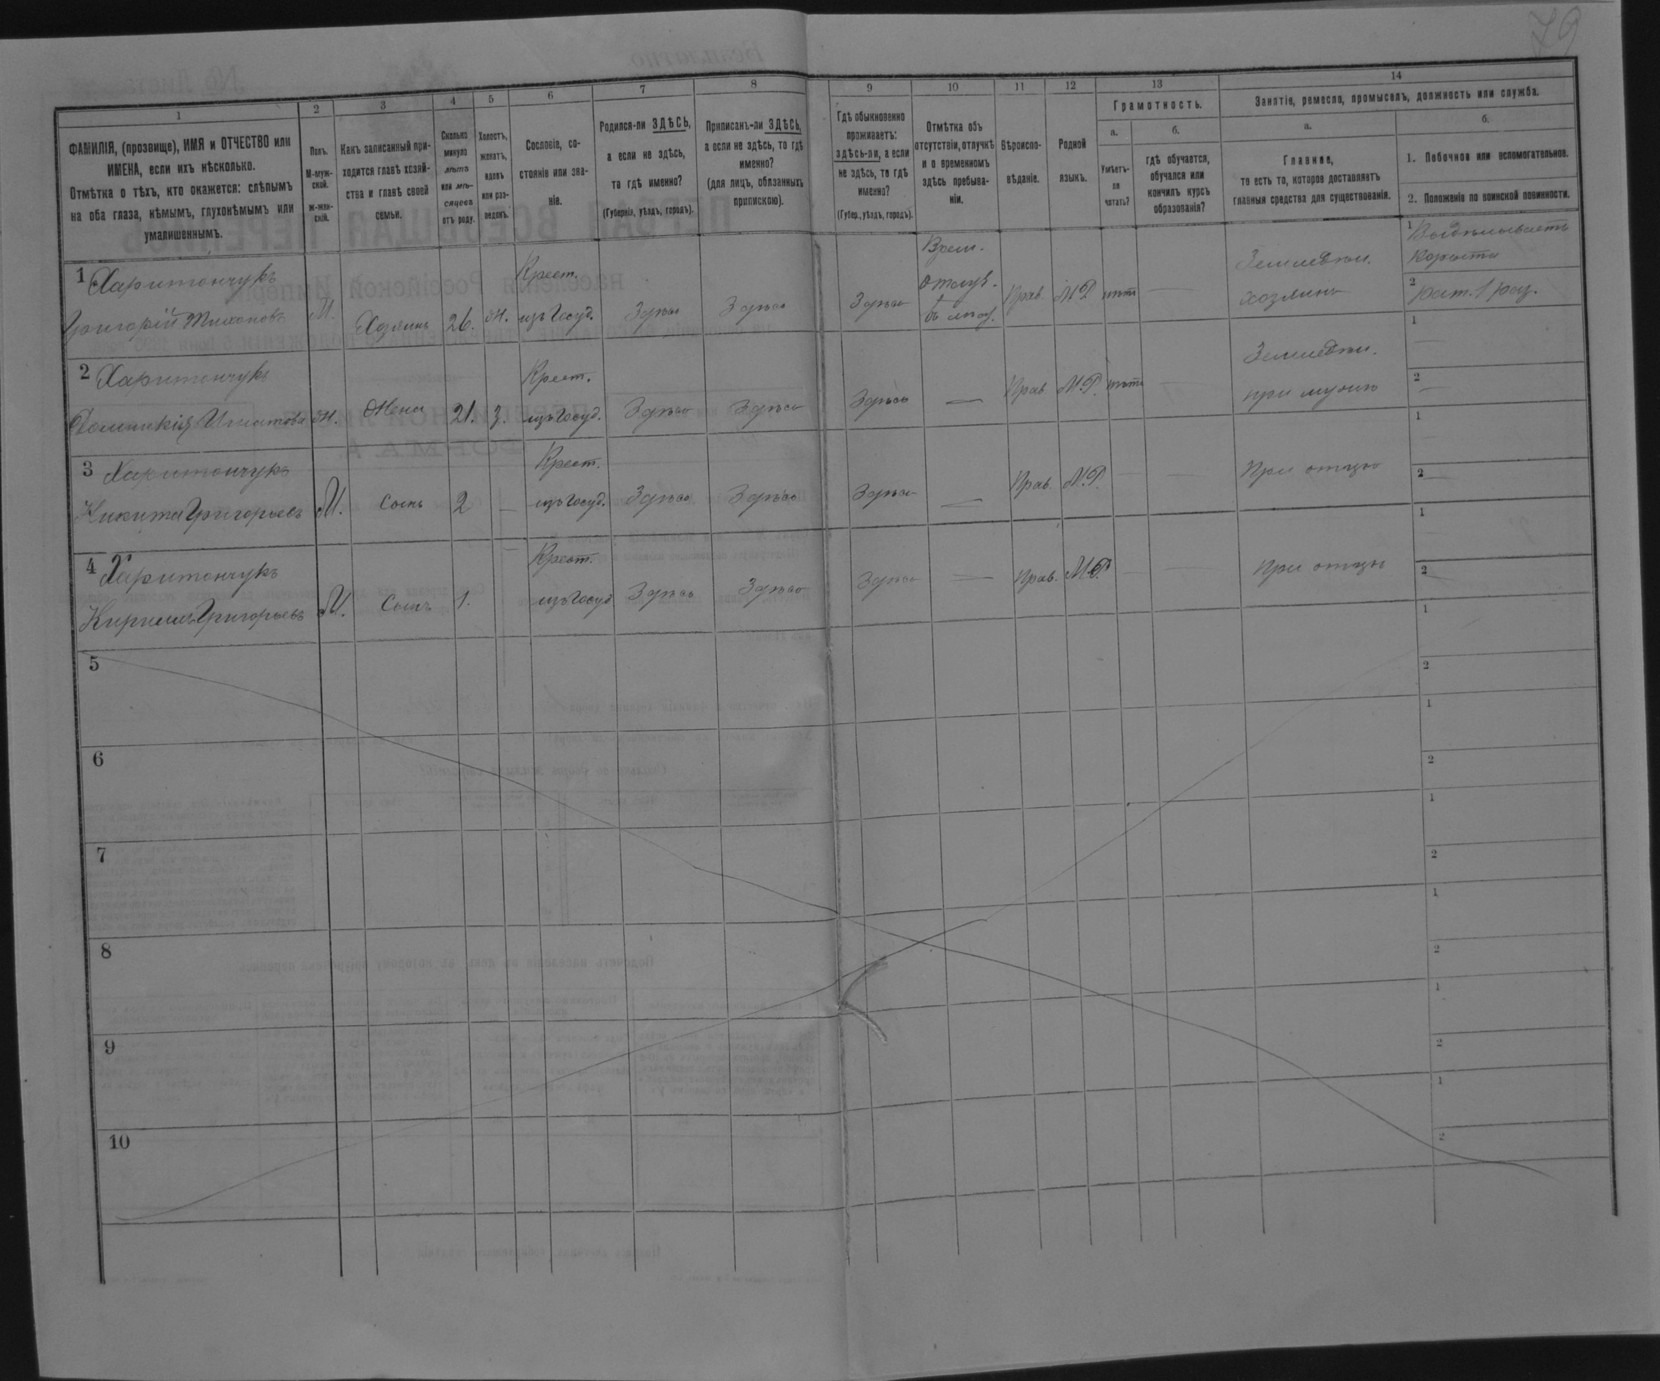 79
1
2
3
4
5
6
7
8
9
10
11
12
13
14
ФАМИЛІЯ, (прозвище), ИМЯ и ОТЧЕСТВО или
ИМЕНА, если ихъ нѣсколько.
Отмѣтка о тѣхъ, кто окажется: слѣпымъ
на оба глаза, нѣмымъ, глухонѣмымъ или
умалишеннымъ.
Полъ.
М-муж-
ской.
Ж-жен-
скій.
Какъ записанный при-
ходится главѣ хозяй-
ства и главѣ своей
семьи.
Сколько
минуло
лѣтъ
или мѣ-
сяцевъ
отъ роду.
Холостъ,
женатъ,
вдовъ
или раз-
веденъ.
Сословіе, со-
стояніе или зва-
ніе.
Родился-ли ЗДѢСЬ,
а если не здѣсь,
то гдѣ именно?
(Губернія, уѣздъ, городъ).
Приписанъ-ли ЗДѢСЬ,
а если не здѣсь, то гдѣ
именно?
(для лицъ, обязанныхъ
припискою).
Гдѣ обыкновенно
проживаетъ:
здѣсь-ли, а если
не здѣсь, то гдѣ
именно?
(Губер., уѣздъ, городъ).
Отмѣтка объ
отсутствіи, отлучкѣ
и о временномъ
здѣсь пребыва-
ніи.
Вѣроиспо-
вѣданіе.
Родной
языкъ.
Грамотность.
а.
Умѣетъ-
ли
читать?
б.
гдѣ обучается,
обучался или
кончилъ курсъ
образованія?
Занятіе, ремесло, промыселъ, должность или служба.
а.
Главное,
то есть то, которое доставляетъ
главныя средства для существованія.
б.
1. Побочное или вспомогательное.
2. Положеніе по воинской повинности.
1 Харитончукъ
Григорій Тихоновъ
М.
Хозяинъ
26.
Ж.
Крест.
изъ Госуд.
Здѣсь
Здѣсь
Здѣсь
Врем.
отлуч.
Прав.
М.Р.
нѣтъ
—
Земледѣл.
хозяинъ
1
2 рат. 1 раз.
2 Харитончукъ
Ж.
Жена
21.
З.
Крест.
изъ Госуд.
Здѣсь
Здѣсь
Здѣсь
—
Прав.
М.Р.
нѣтъ
—
Земледѣл.
при мужѣ
1 —
2 —
3 Харитончукъ
Никита Григорьевъ
М.
Сынъ
2
—
Крест.
изъ Госуд.
Здѣсь
Здѣсь
Здѣсь
—
Прав.
М.Р.
—
—
При отцѣ
1 —
2 —
4 Харитончукъ
Кирилъ Григорьевъ
М.
Сынъ
1.
—
Крест.
изъ Госуд.
Здѣсь
Здѣсь
Здѣсь
—
Прав.
М.Р.
—
—
При отцѣ
1 —
2 —
5
1
2
6
1
2
7
1
2
8
1
2
9
1
2
10
1
2